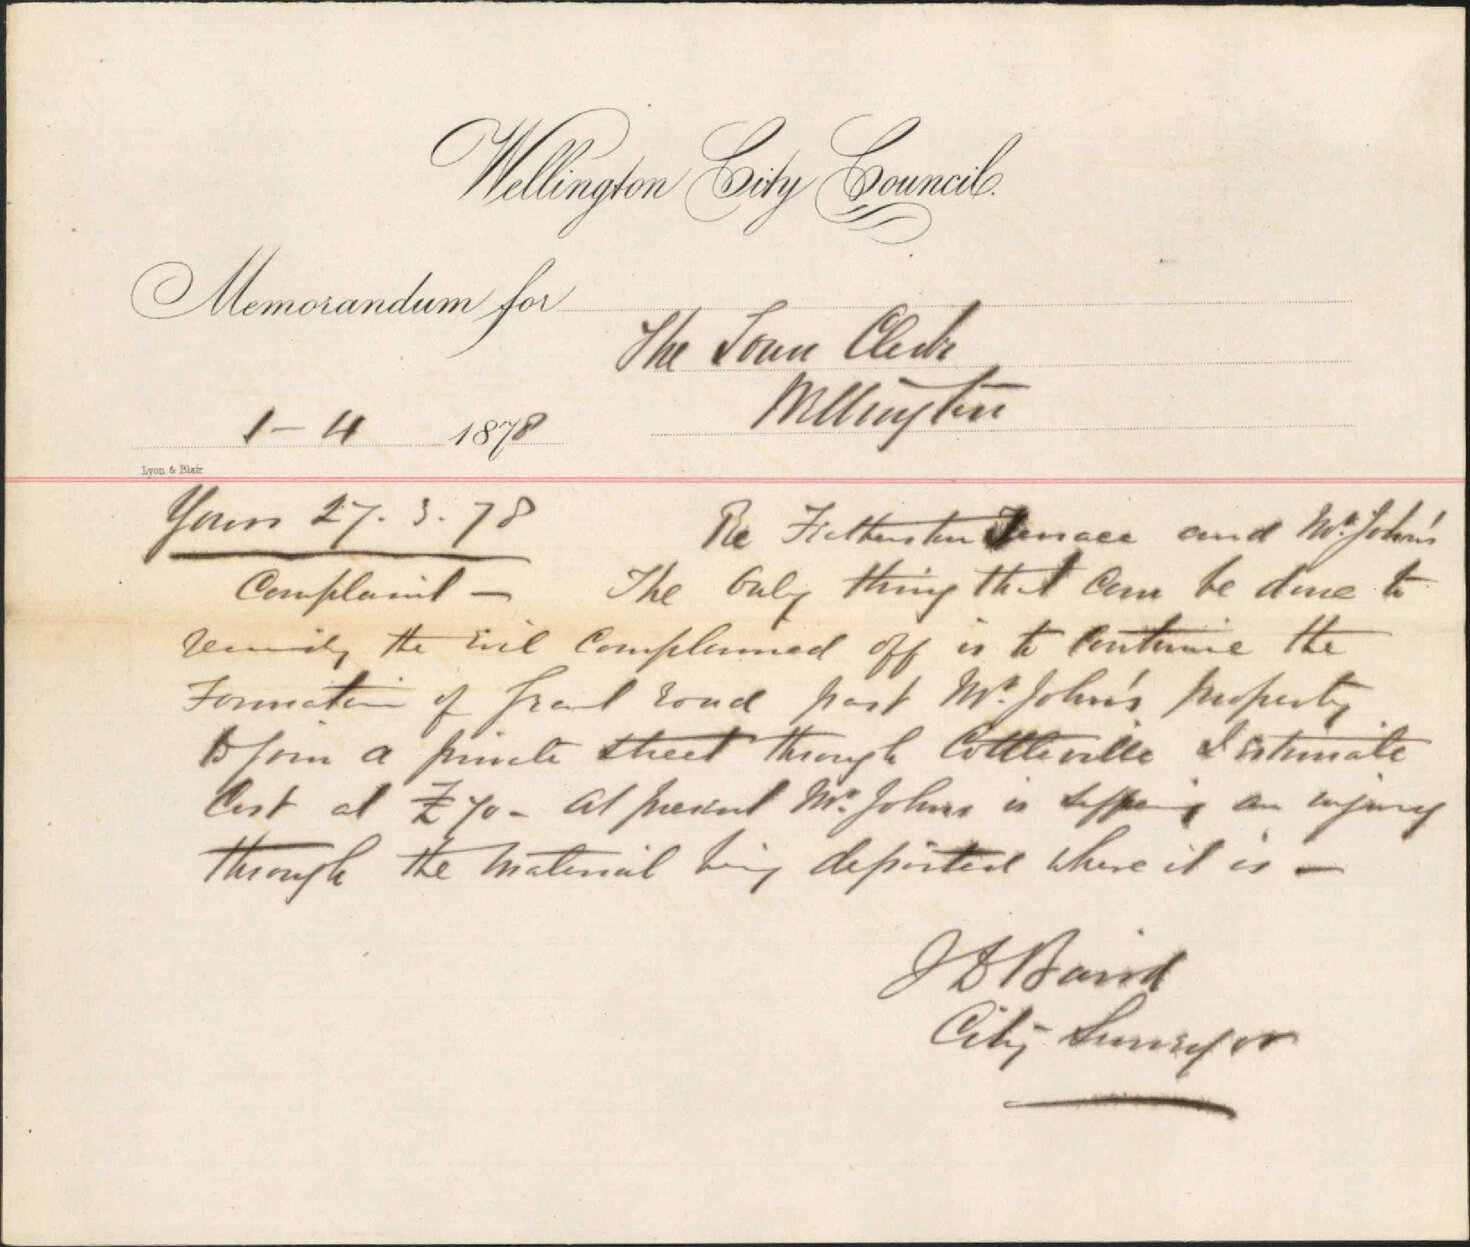 Wellington City Council.
Memorandum for
The Town Clerk
Wellington
1-4 1878
Lyon & Blair
Yours 27. 3. 78 Re Fetherston Terrace and Mr. John's
Complaint — The Only thing that can be done to
remidy the evil complained off is to continue the
Formation of Grant road past Mr. John's property
to join a private street through Cottleville I estimate
Cost at £70 - At present Mr. Johns is suffering an injury
through the material being deposited where it is —
J D Baird
City Surveyor